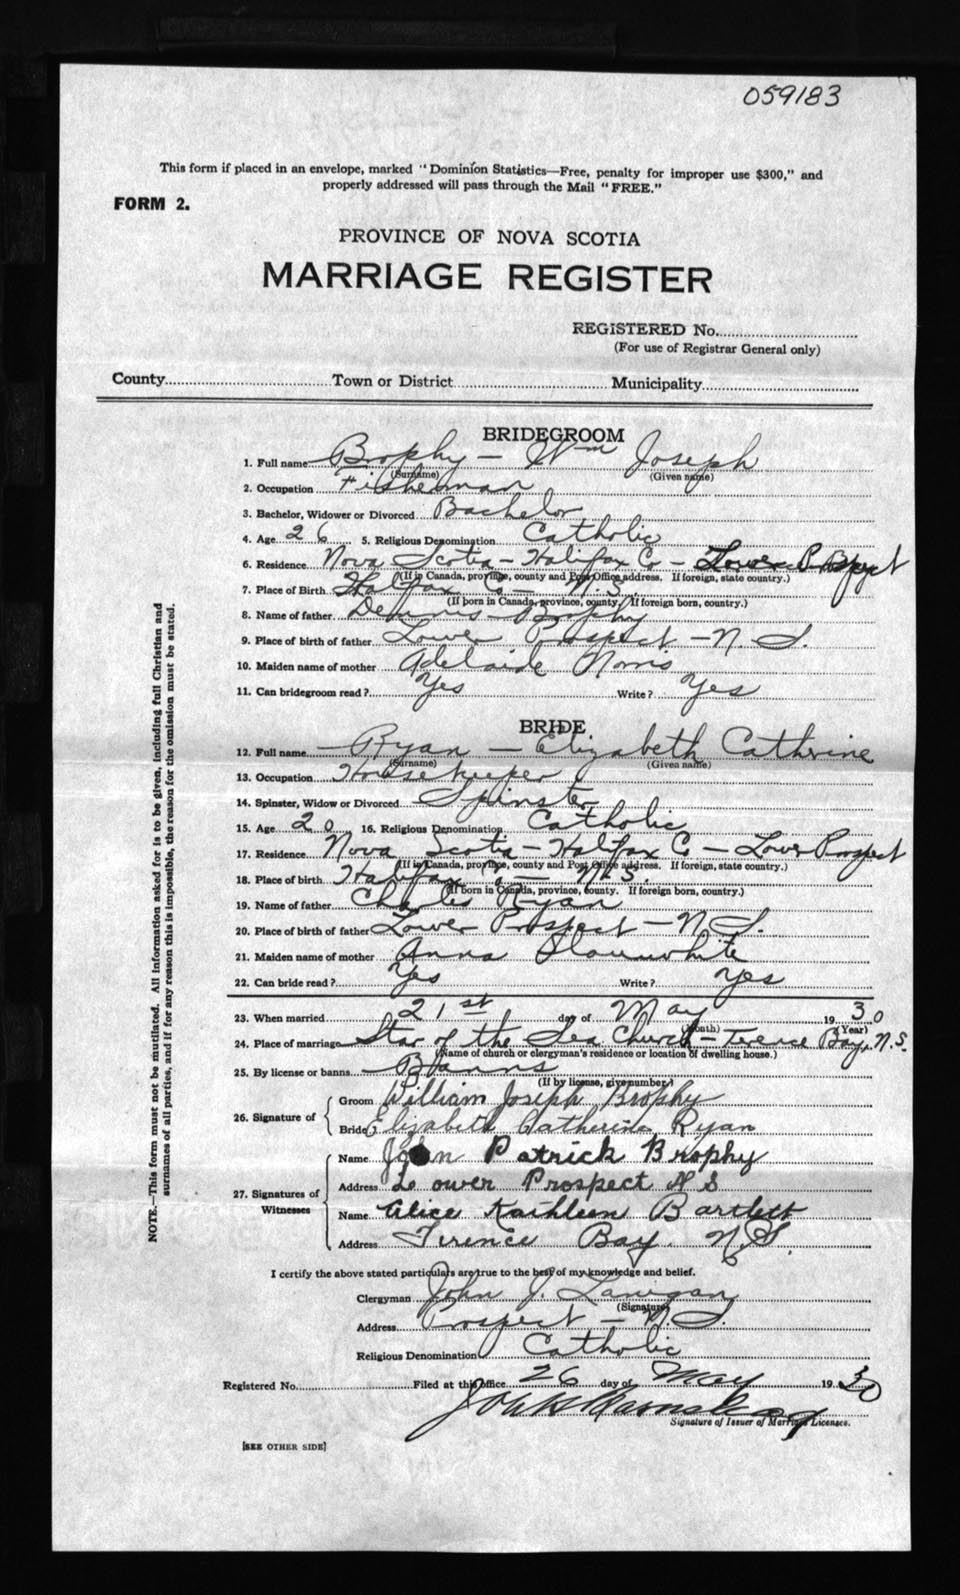 059183
This form if placed in an envelope, marked "Dominion Statistics—Free, penalty for improper use $300," and
properly addressed will pass through the Mail "FREE."
FORM 2.
PROVINCE OF NOVA SCOTIA
MARRIAGE REGISTER
REGISTERED No.
(For use of Registrar General only)
County Town or District Municipality
BRIDEGROOM
1. Full name Brophy — Wm Joseph
(Surname) (Given name)
2. Occupation Fisherman
3. Bachelor, Widower or Divorced Bachelor
4. Age 26 5. Religious Denomination Catholic
6. Residence Nova Scotia — Halifax Co — Lower Prospect
(If in Canada, province, county and Post Office address. If foreign, state country.)
7. Place of Birth Halifax Co — N.S.
(If born in Canada, province, county. If foreign born, country.)
8. Name of father Dennis Brophy
9. Place of birth of father Lower Prospect — N.S.
10. Maiden name of mother Adelaide Norris
11. Can bridegroom read? Yes Write? Yes
BRIDE
12. Full name Ryan — Elizabeth Cathrine
(Surname) (Given name)
13. Occupation Housekeeper
14. Spinster, Widow or Divorced Spinster
15. Age 20 16. Religious Denomination Catholic
17. Residence Nova Scotia — Halifax Co — Lower Prospect
(If in Canada, province, county and Post Office address. If foreign, state country.)
18. Place of birth Halifax Co — N.S.
(If born in Canada, province, county. If foreign born, country.)
19. Name of father Charles Ryan
20. Place of birth of father Lower Prospect — N.S.
21. Maiden name of mother Anna Slaunwhite
22. Can bride read? Yes Write? Yes
23. When married 21st day of May 1930
(Month) (Year)
24. Place of marriage Star of the Sea Church — Terence Bay, N.S.
(Name of church or clergyman's residence or location of dwelling house.)
25. By license or banns Banns
(If by license, give number)
26. Signature of { Groom William Joseph Brophy
Bride Elizabeth Catherine Ryan
27. Signatures of Witnesses { Name John Patrick Brophy
Address Lower Prospect N S
Name Alice Kathleen Bartlett
Address Terence Bay. N.S.
I certify the above stated particulars are true to the best of my knowledge and belief.
Clergyman John J. Lanigan
(Signature)
Address Prospect — N.S.
Religious Denomination Catholic
Registered No. Filed at this office 26 day of May 1930
Signature of Issuer of Marriage Licenses.
[SEE OTHER SIDE]
NOTE.—This form must not be mutilated. All information asked for is to be given, including full Christian and
surnames of all parties, and if for any reason this is impossible, the reason for the omission must be stated.